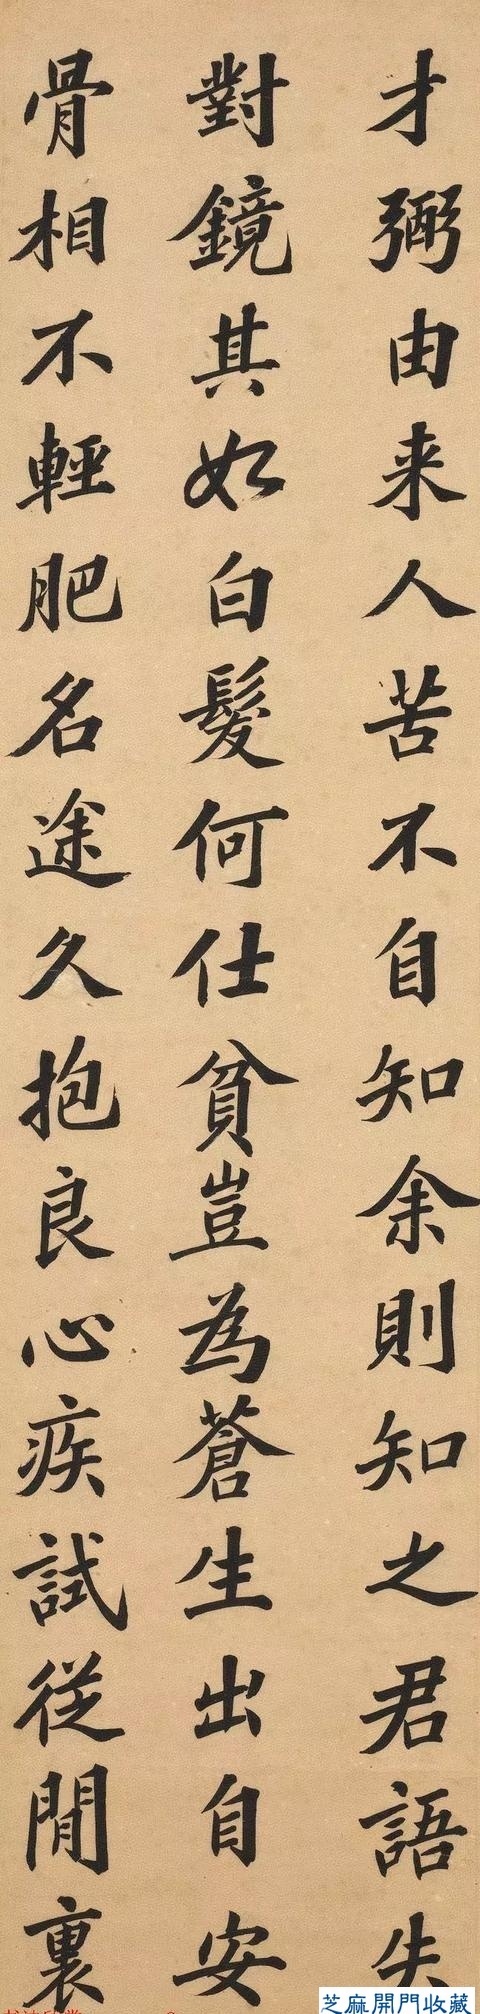 才弼由来人苦不自知余則知之君語失
對鏡其如白髮何仕貧豈為蒼生出自安
骨相不輕肥名途久抱良心疾試從閒裏
芝麻開門收藏